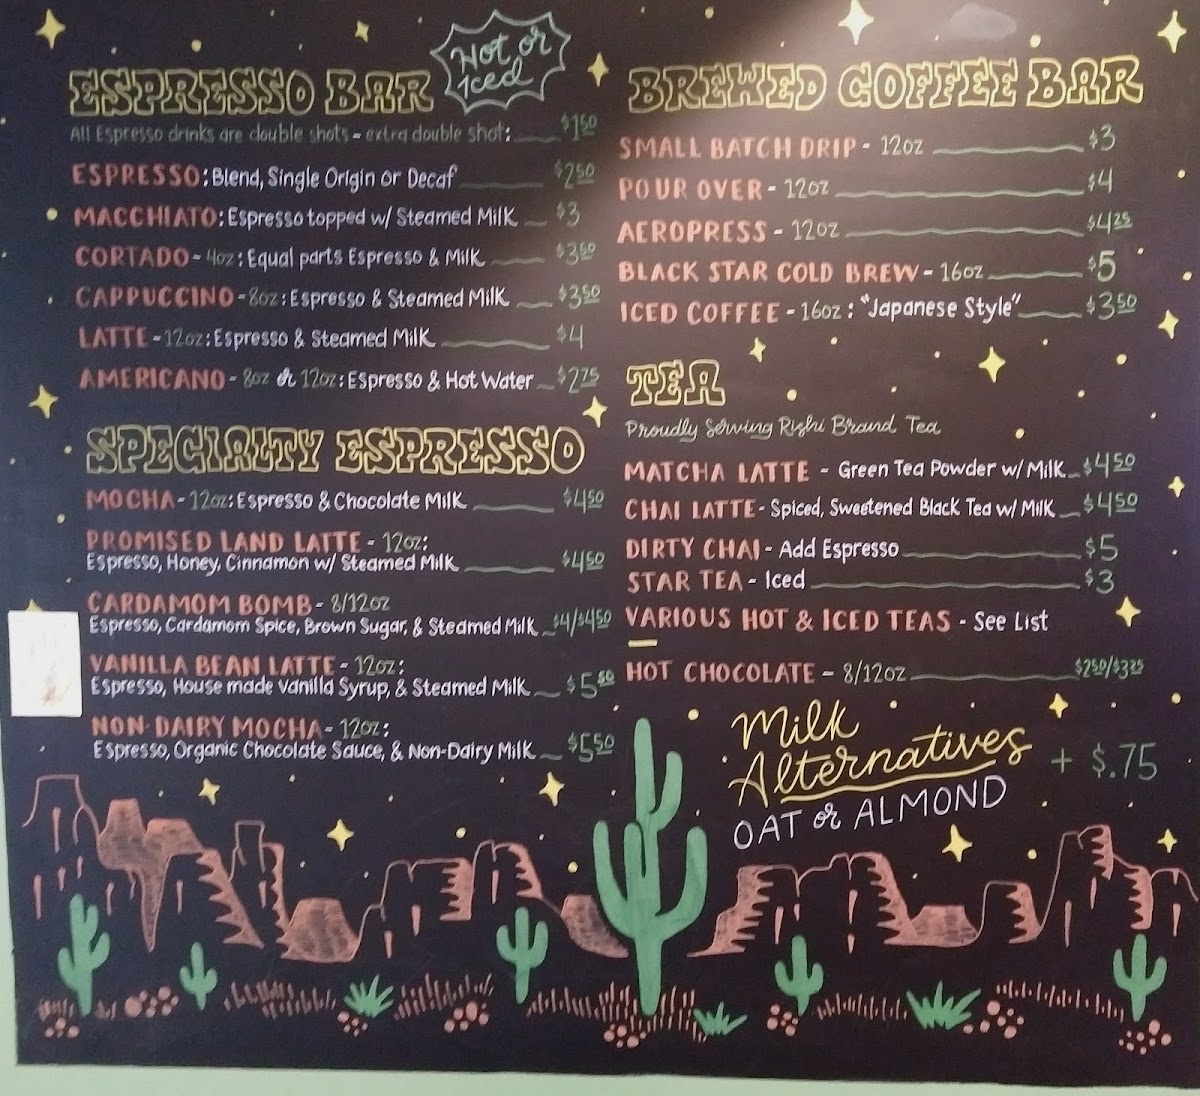 Hot or
Iced
ESPRESSO BAR
All Espresso drinks are double shots - extra double shot: $1.50
ESPRESSO: Blend, Single Origin or Decaf $2.50
MACCHIATO: Espresso topped w/ Steamed Milk $3
CORTADO - 4oz: Equal parts Espresso & Milk $3.50
CAPPUCCINO - 8oz: Espresso & Steamed Milk $3.50
LATTE - 12oz: Espresso & Steamed Milk $4
AMERICANO - 8oz or 12oz: Espresso & Hot Water $2.75
SPECIALTY ESPRESSO
MOCHA - 12oz: Espresso & Chocolate Milk $4.50
PROMISED LAND LATTE - 12oz:
Espresso, Honey, Cinnamon w/ Steamed Milk $4.50
CARDAMOM BOMB - 8/12oz
Espresso, Cardamom Spice, Brown Sugar, & Steamed Milk $4/$4.50
VANILLA BEAN LATTE - 12oz:
Espresso, House made Vanilla Syrup, & Steamed Milk $5.50
NON-DAIRY MOCHA - 12oz:
Espresso, Organic Chocolate Sauce, & Non-Dairy Milk $5.50
BREWED COFFEE BAR
SMALL BATCH DRIP - 12oz $3
POUR OVER - 12oz $4
AEROPRESS - 12oz $4.25
BLACK STAR COLD BREW - 16oz $5
ICED COFFEE - 16oz: "Japanese Style" $3.50
TEA
Proudly Serving Rishi Brand Tea
MATCHA LATTE - Green Tea Powder w/ Milk $4.50
CHAI LATTE - Spiced, Sweetened Black Tea w/ Milk $4.50
DIRTY CHAI - Add Espresso $5
STAR TEA - Iced $3
VARIOUS HOT & ICED TEAS - See List
HOT CHOCOLATE - 8/12oz $2.50/$3.25
Milk
Alternatives + $.75
OAT or ALMOND